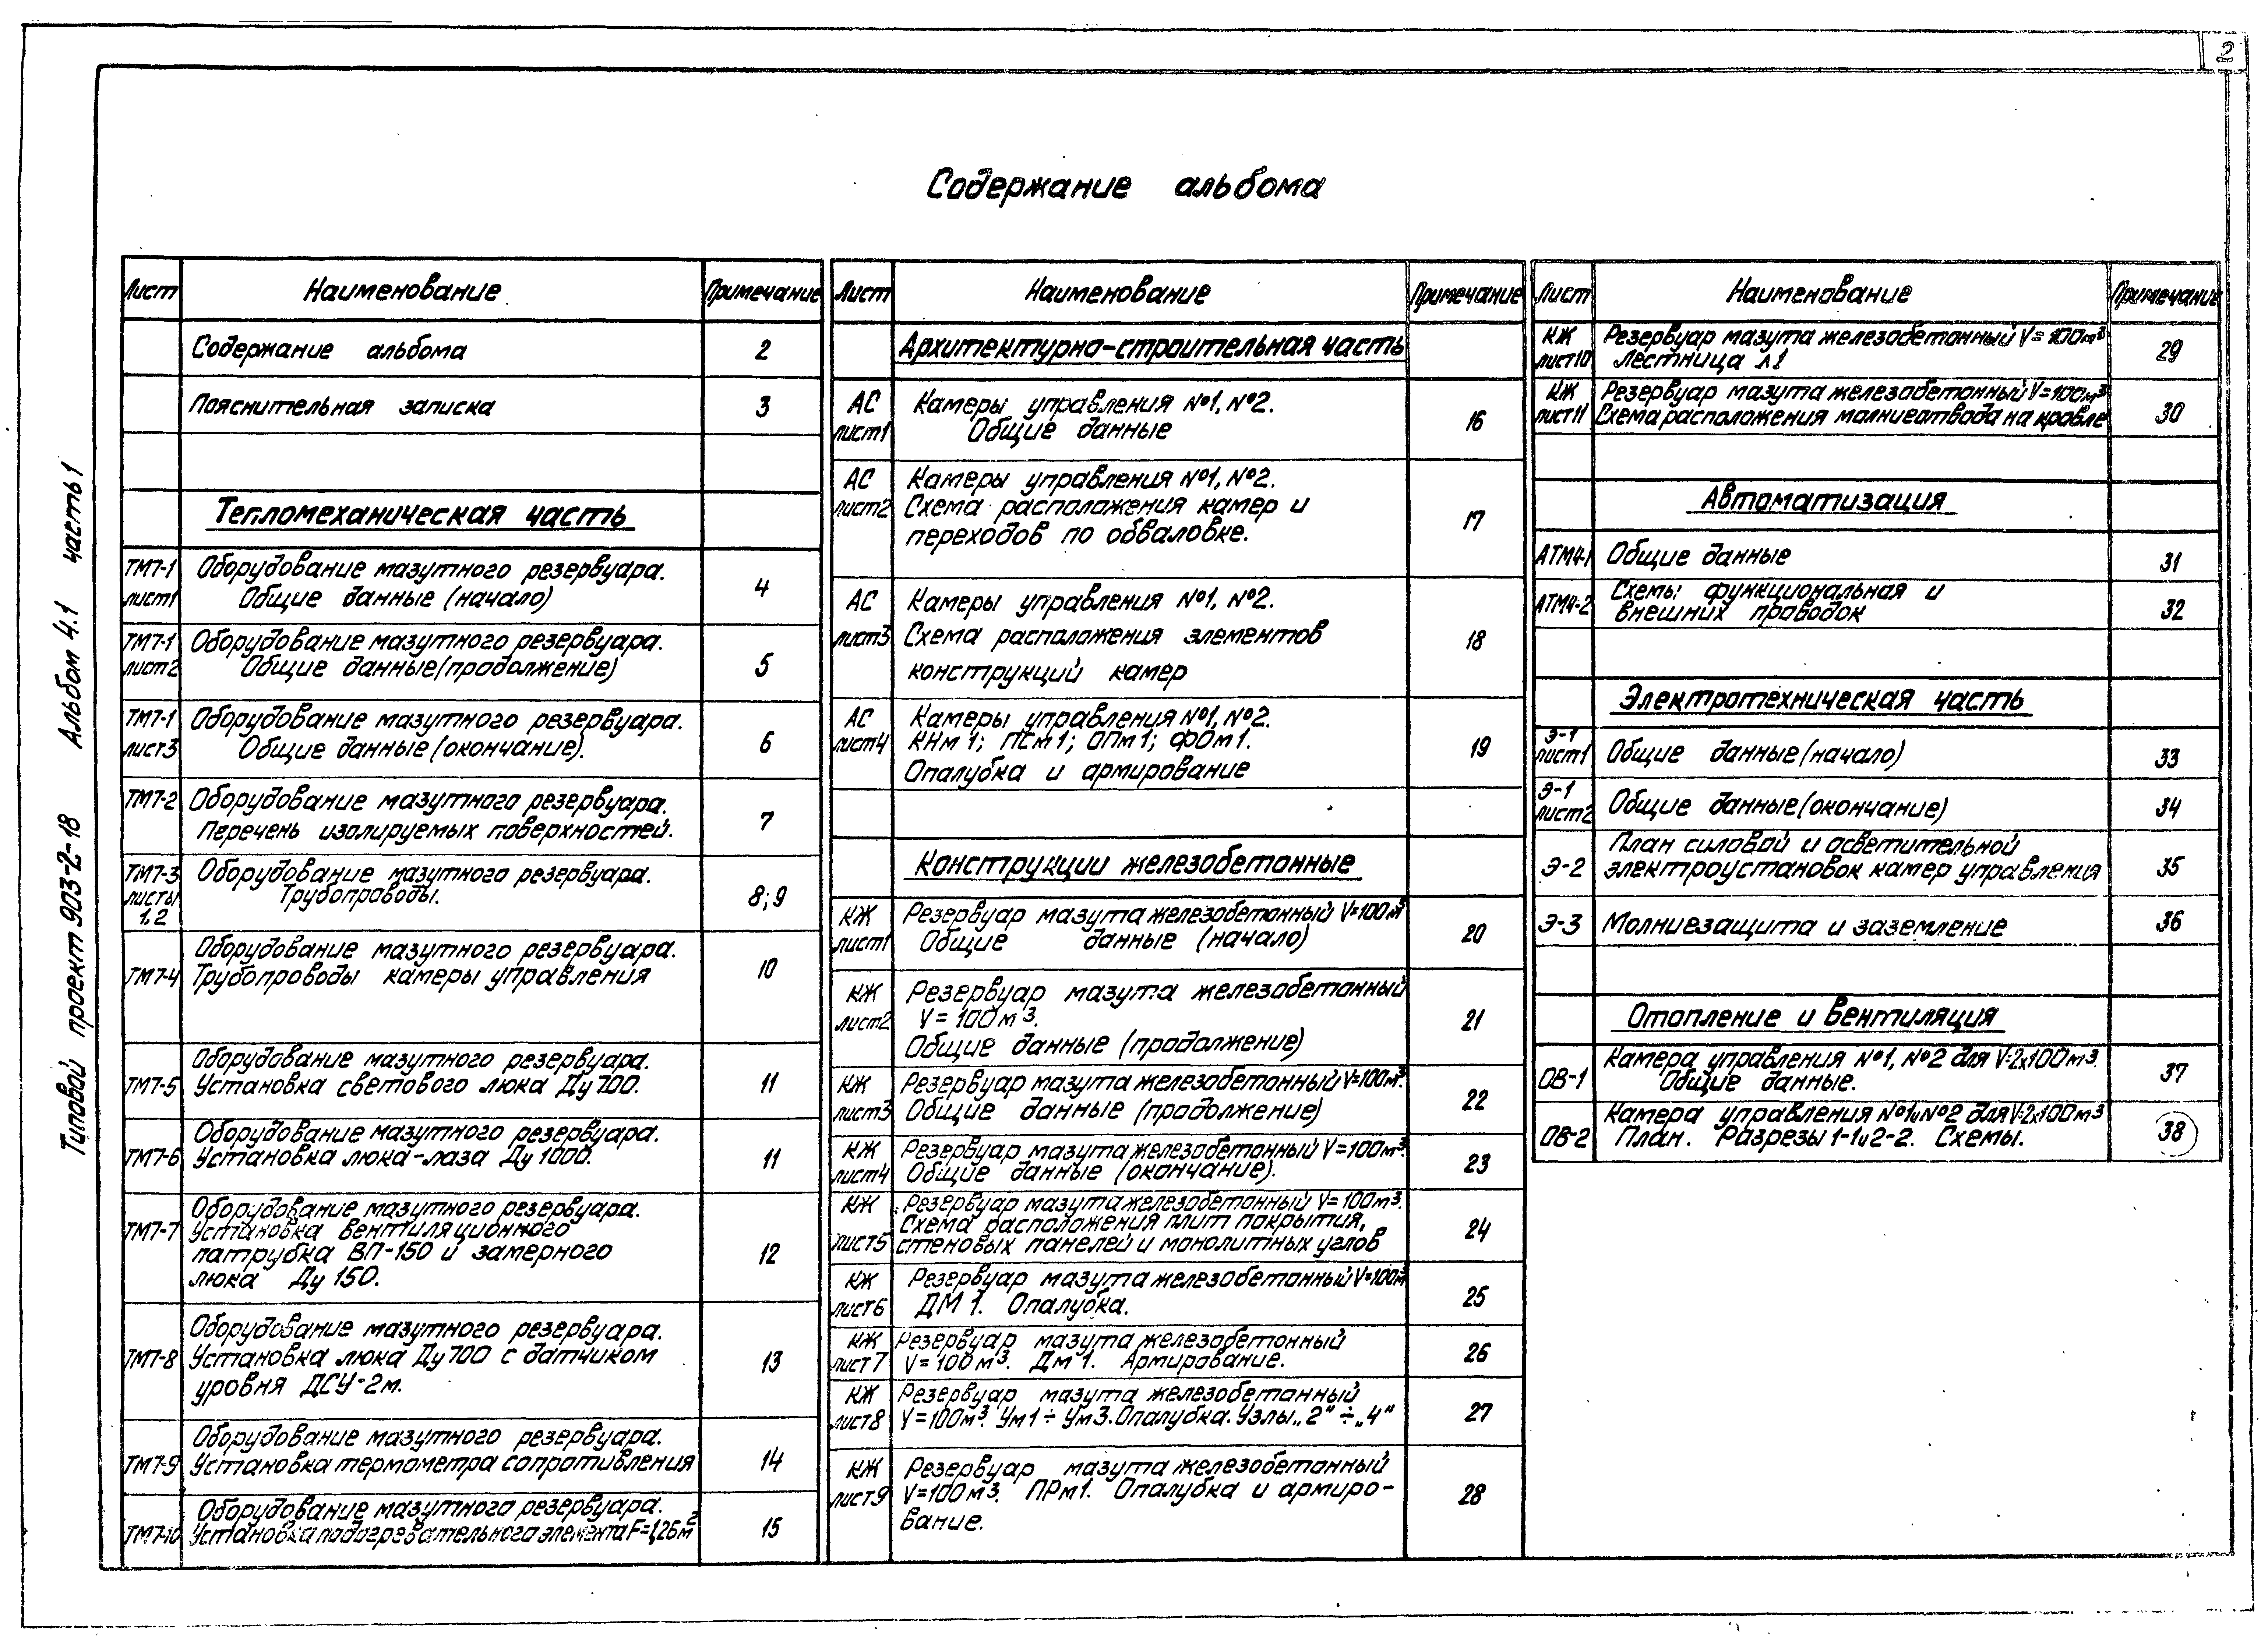 2
Содержание альбома
Типовой проект 903-2-18 Альбом 4.1 часть 1
Лист Наименование Примечание
Содержание альбома 2
Пояснительная записка 3
Тепломеханическая часть
ТМ7-1 Оборудование мазутного резервуара.
лист1 Общие данные (начало) 4
ТМ7-1 Оборудование мазутного резервуара.
лист2 Общие данные(продолжение) 5
ТМ7-1 Оборудование мазутного резервуара.
лист3 Общие данные (окончание). 6
ТМ7-2 Оборудование мазутного резервуара.
Перечень изолируемых поверхностей. 7
ТМ7-3 Оборудование мазутного резервуара.
листы Трубопроводы. 8;9
1.2
Оборудование мазутного резервуара.
ТМ7-4 Трубопроводы камеры управления 10
Оборудование мазутного резервуара.
ТМ7-5 Установка светового люка Ду 700. 11
Оборудование мазутного резервуара.
ТМ7-6 Установка люка-лаза Ду 1000. 11
Оборудование мазутного резервуара.
ТМ7-7 Установка вентиляционного
патрубка ВП-150 и замерного 12
люка Ду 150.
Оборудование мазутного резервуара.
ТМ7-8 Установка люка Ду 700 с датчиком 13
уровня ДСУ-2м.
Оборудование мазутного резервуара.
ТМ7-9 Установка термометра сопротивления 14
Оборудование мазутного резервуара.
ТМ7-10 Установка подогревательного элемента F=1,26м² 15
Лист Наименование Примечание
Архитектурно-строительная часть
АС Камеры управления №1, №2.
лист1 Общие данные 16
АС Камеры управления №1, №2.
лист2 Схема расположения камер и 17
переходов по обваловке.
АС Камеры управления №1, №2.
лист3 Схема расположения элементов 18
конструкций камер
АС Камеры управления №1, №2.
лист4 КНм 1; ПСм 1; ОПм 1; ФОм 1. 19
Опалубка и армирование
Конструкции железобетонные
КЖ Резервуар мазута железобетонный V=100м³
лист1 Общие данные (начало) 20
КЖ Резервуар мазута железобетонный
лист2 V=100м³. 21
Общие данные (продолжение)
КЖ Резервуар мазута железобетонный V=100м³.
лист3 Общие данные (продолжение) 22
КЖ Резервуар мазута железобетонный V=100м³.
лист4 Общие данные (окончание). 23
КЖ Резервуар мазута железобетонный V=100м³.
Схема расположения плит покрытия, 24
лист5 стеновых панелей и монолитных углов
КЖ Резервуар мазута железобетонный V=100м³
лист6 ДМ 1. Опалубка. 25
КЖ Резервуар мазута железобетонный
лист7 V=100м³. Дм 1. Армирование. 26
КЖ Резервуар мазута железобетонный
лист8 V=100м³. Ум1÷Ум3. Опалубка. Узлы „2"÷„4" 27
КЖ Резервуар мазута железобетонный
лист9 V=100м³. ПРм1. Опалубка и армиро- 28
вание.
Лист Наименование Примечание
КЖ Резервуар мазута железобетонный V=100м³
лист10 Лестница Л1 29
КЖ Резервуар мазута железобетонный V=100м³
лист11 Схема расположения молниеотвода на кровле 30
Автоматизация
АТМ4-1 Общие данные 31
Схемы функциональная и
АТМ4-2 внешних проводок 32
Электротехническая часть
Э-1
лист1 Общие данные(начало) 33
Э-1
лист2 Общие данные(окончание) 34
План силовой и осветительной
Э-2 электроустановок камер управления 35
Э-3 Молниезащита и заземление 36
Отопление и вентиляция
Камера управления №1, №2 для V=2х100м³.
ОВ-1 Общие данные. 37
Камера управления №1и№2 для V=2х100м³
ОВ-2 План. Разрезы 1-1и2-2. Схемы. 38